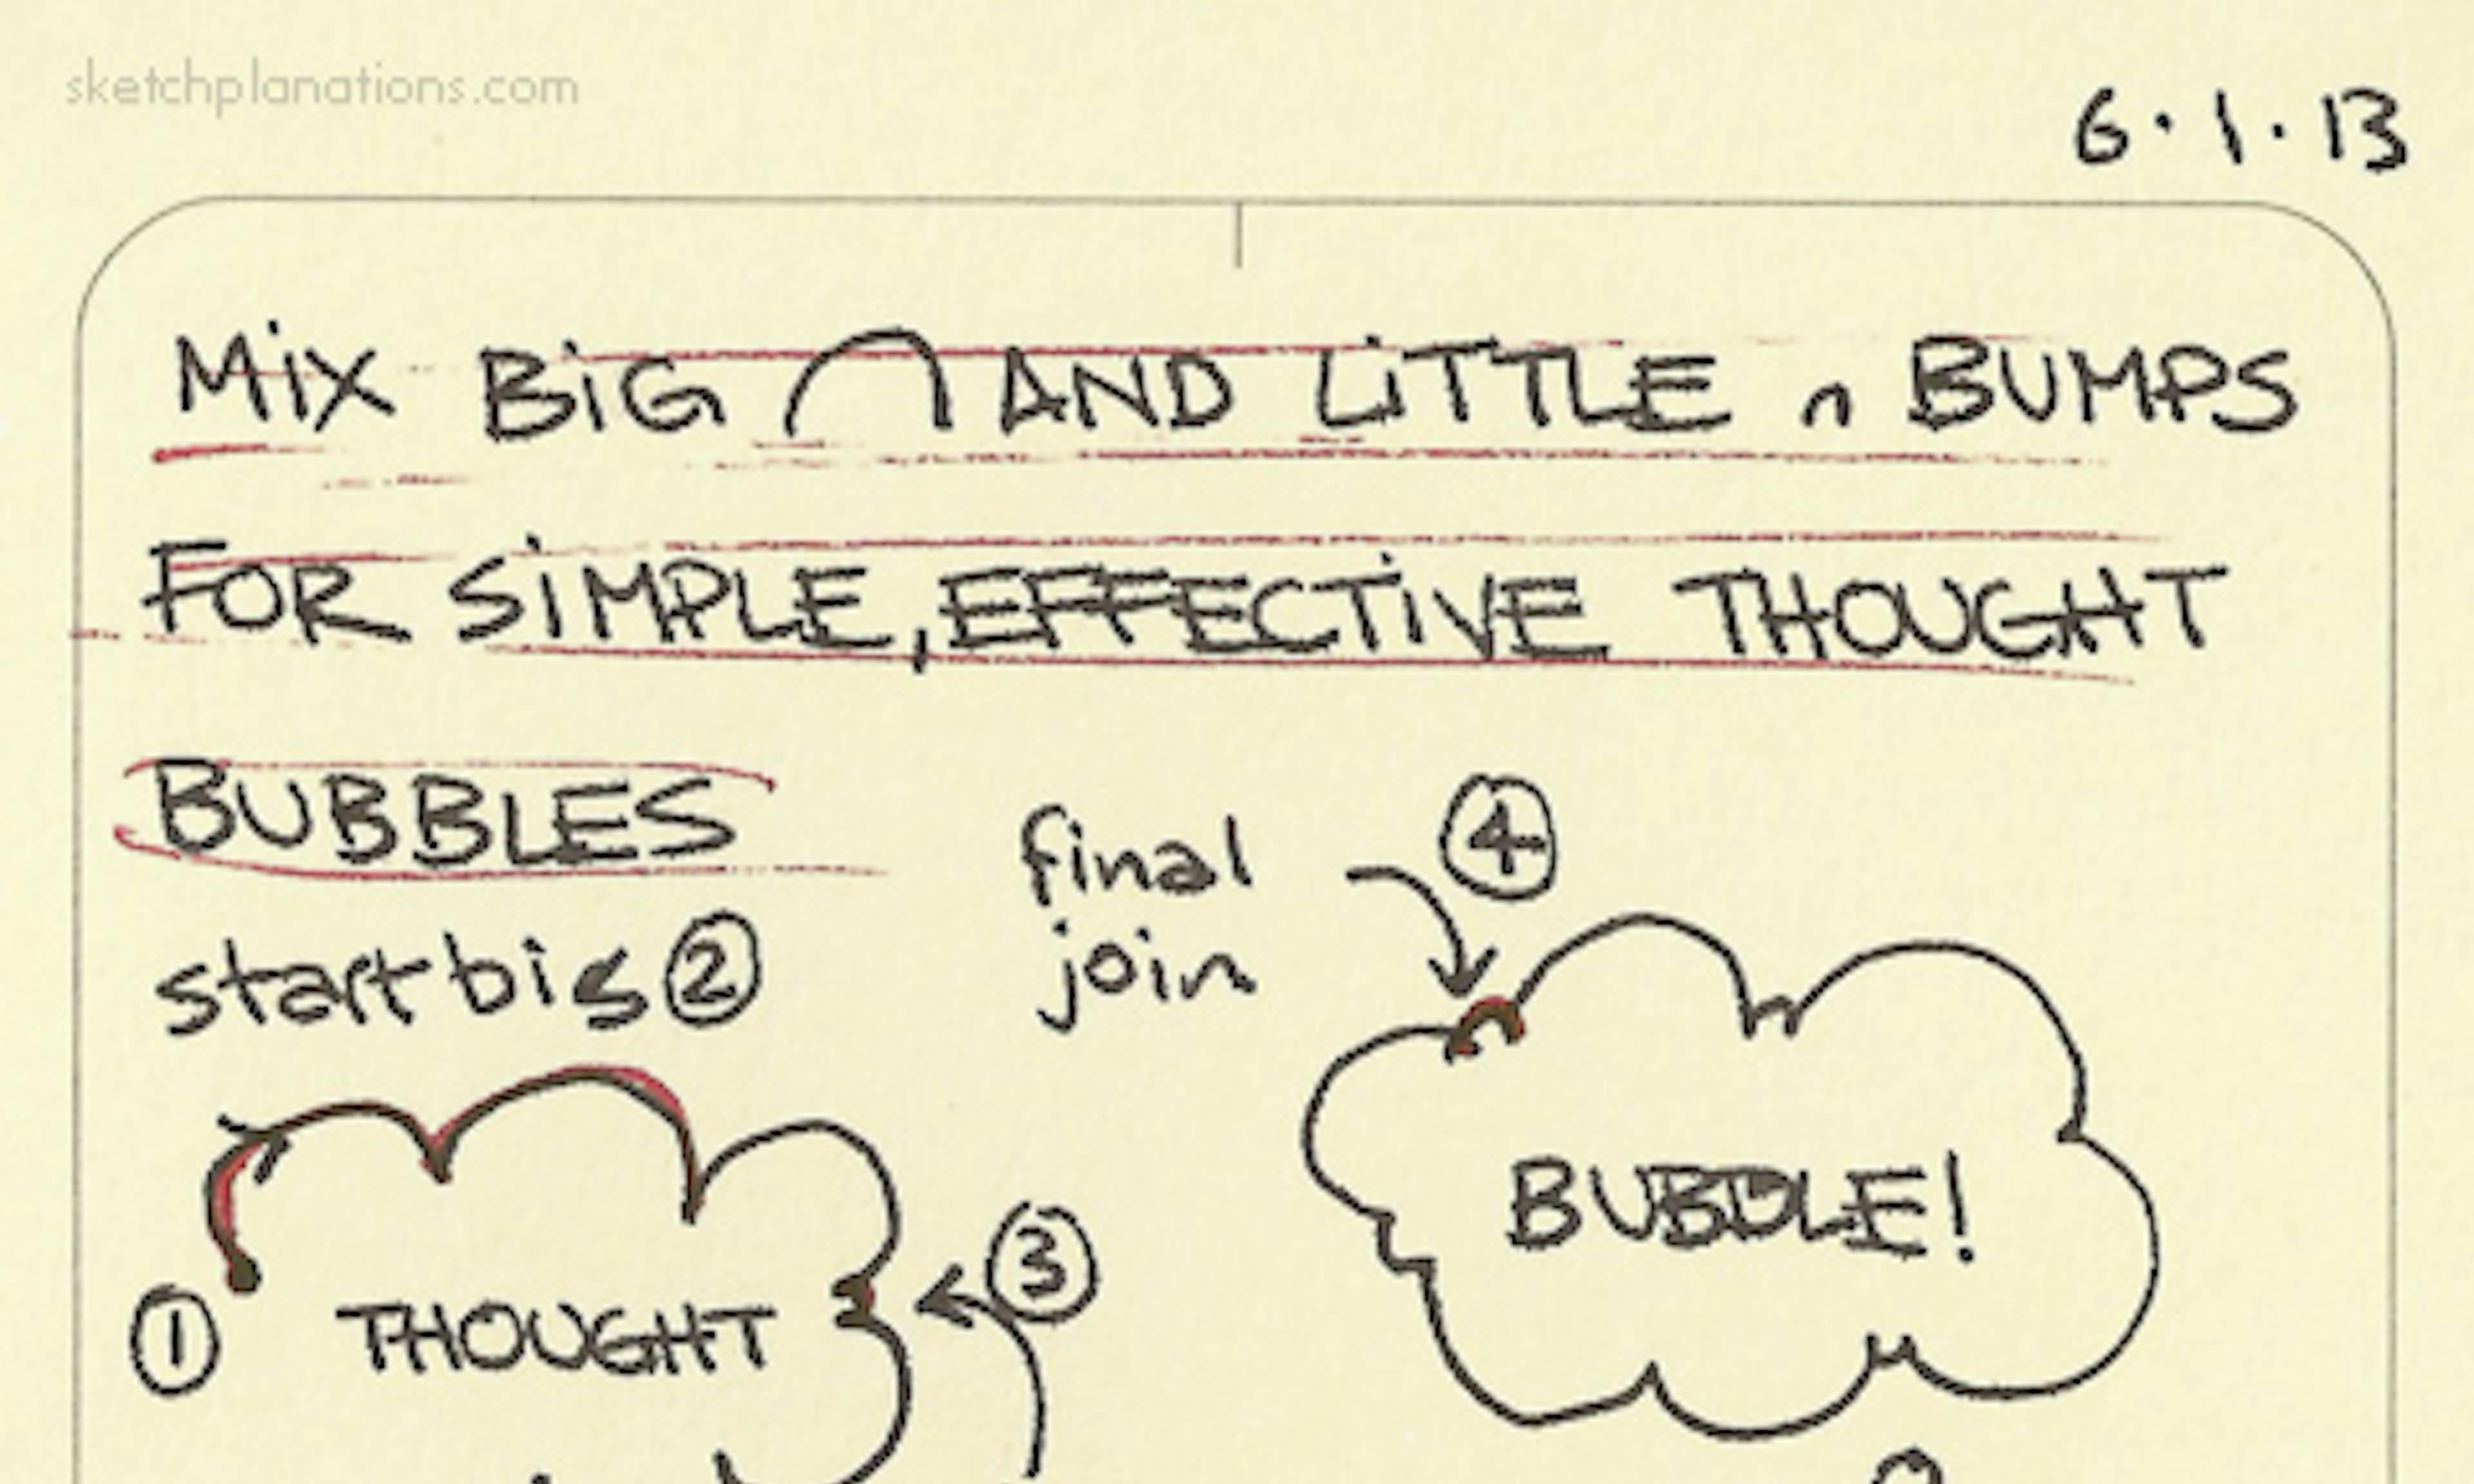 sketchplanations.com
6·1·13
MiX BiG AND LiTTLE BUMPS
FOR SiMPLE, EFFECTiVE THOUGHT
BUBBLES
start big ②
final
join
④
③
①
THOUGHT
BUBBLE!